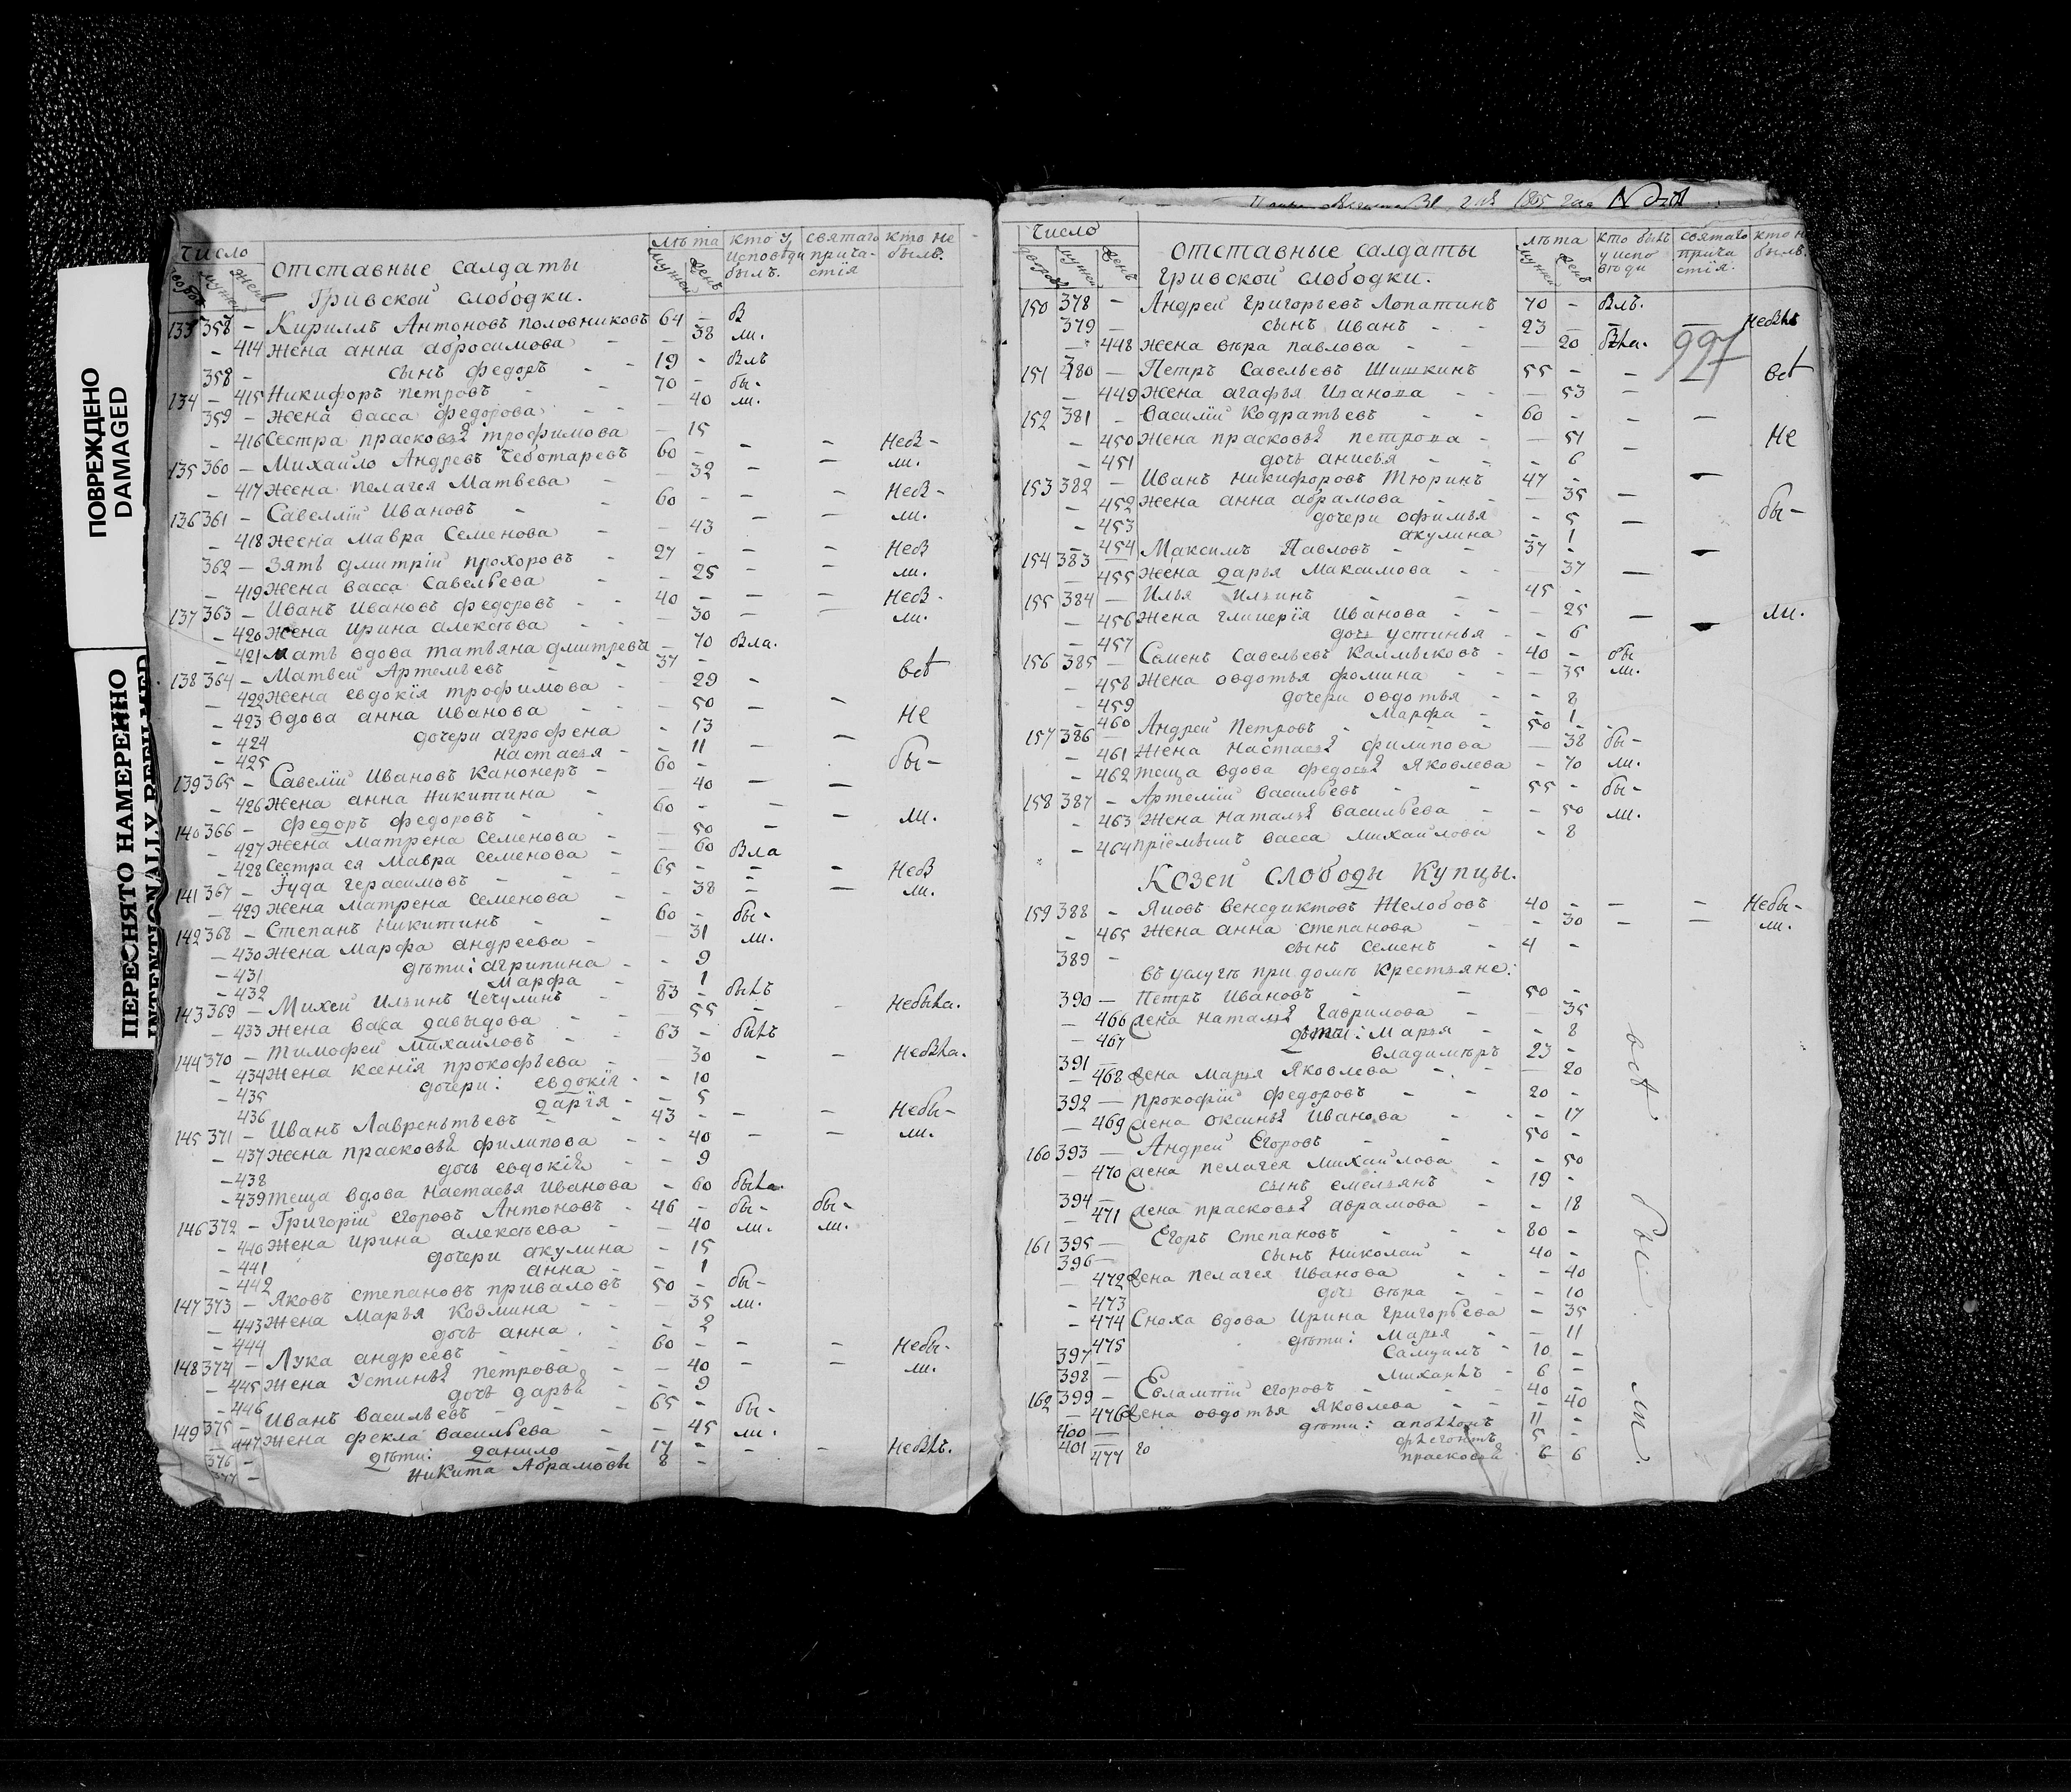 ПОВРЕЖДЕНО
DAMAGED
ПЕРЕСНЯТО НАМЕРЕННО
INTENTIONALLY REFILMED
Число
отставные салдаты
Гривской слободки.
лѣта
кто у исповѣди былъ.
святаго прича-стія
кто не былъ.
133 358 - Кириллъ Антоновъ половниковъ 64 - б
- 414 жена анна абросимова - 38 ли.
358 - сынъ федоръ 19 - былъ
134 - 415 Никифоръ петровъ 70 - бы-
359 - жена васса федорова - 40 ли.
- 416 Сестра прасковья трофимова - 15
135 360 - Михайло Андревъ Чеботаревъ 60 - - - Небы-
- 417 жена пелагея Матвѣева - 32 - - ли.
136 361 - Савеллій Ивановъ 60 - - - Небы-
- 418 жена Мавра Семенова - 43 - ли.
362 - Зять дмитрій прохоровъ 27 - - - Небы
- 419 жена васса Савельева - 25 - - ли.
137 363 - Иванъ Ивановъ федоровъ 40 - - - Небы-
- 420 жена ирина алексѣева - 30 - - ли.
- 421 мать вдова татьяна дмитрева - 70 была.
138 364 - Матвей Артемьевъ 37 - всѣ
- 422 жена евдокія трофимова - 29 -
- 423 вдова анна Иванова - 50 - - Не
- 424 дочери агрофена - 13
- 425 настасья - 11 - - бы-
139 365 - Савелій Ивановъ Канонеръ - 60 -
- 426 жена анна Никитина - 40 - -
140 366 - федоръ федоровъ 60 - - - ли.
- 427 жена Матрена Семенова - 50 -
- 428 Сестра ея Мавра Семенова - 60 была
141 367 - Іуда герасимовъ 65 - - - Небы
- 429 жена Матрена Семенова - 38 - - ли.
142 368 - Степанъ Никитинъ 60 - бы-
- 430 жена Марфа андреева - 31 ли.
- 431 дѣти: агрипина - 9
- 432 Марфа - 1
143 369 - Михей Ильинъ Чечулинъ 83 - былъ
- 433 жена васа давыдова - 55 - - Небыла.
144 370 - Тимофей Михаиловъ 63 - былъ
- 434 жена ксенія прокофьева - 30 - - Небыла.
- 435 дочери: евдокія - 10
436 дарія - 5
145 371 - Иванъ Лаврентьевъ 43 - - - Небы-
- 437 жена прасковья филипова - 40 - - ли.
- 438 дочь евдокія - 9
- 439 теща вдова настасья иванова - 60 была
146 372 - Григорій егоровъ Антоновъ - 46 - бы- бы-
- 440 жена ирина алексѣева - 40 ли. ли.
- 441 дочери акулина - 15
- 442 анна - 1
147 373 - Яковъ степановъ приваловъ 50 - бы-
- 443 жена Марья Козмина - 35 ли.
- 444 дочь анна - 2
148 374 - Лука андреевъ 60 - - - Небы-
- 445 жена Устинья петрова - 40 - - ли.
- 446 дочь дарья - 9
149 375 - Иванъ васильевъ 65 - бы-
- 447 жена фекла васильева - 45 ли.
376 - дѣти: данило 17 - - - Небылъ.
377 - никита Абрамовы 8 -
1865 года
Число
отставные салдаты
Гривской слободки.
лѣта
кто былъ у испо вѣди
святаго прича стія.
кто не былъ.
150 378 - Андрей григорьевъ Лопатинъ 70 - былъ.
379 - сынъ иванъ 23 - - - Небылъ
- 448 жена вѣра павлова - 20 была. 997
151 380 - Петръ Савельевъ Шишкинъ 55 - - - всѣ
- 449 жена агафья Иванова - 53 -
152 381 - василій Кодратьевъ 60 - - -
- 450 жена прасковья петрова - 51 - Не
- 451 дочь анисья - 6
153 382 - Иванъ никифоровъ Тюринъ 47 - -
- 452 жена анна абрамова - 35 -
- 453 дочери офимья - 5 - бы-
- 454 акулина - 1
154 383 - Максимъ Павловъ 37 - -
- 455 жена дарья Максимова - 37 -
155 384 - Илья Ильинъ 45 -
- 456 жена глицерія Иванова - 25 - ли.
- 457 дочь устинья - 6 -
156 385 - Семенъ Савельевъ Калмыковъ - 40 - бы
- 458 жена овдотья фомина - 35 ли.
- 459 дочери овдотья - 8
- 460 марфа - 1
157 386 - Андрей Петровъ 50 -
- 461 жена настасья филипова - 38 бы-
- 462 теща вдова федосья Яковлева - 70 ли.
158 387 - Артемій васильевъ 55 - бы-
- 463 жена наталья васильева - 50 ли.
- 464 пріемышъ васса михайлова - 8
Козей слободы купцы.
159 388 - Яковъ Венедиктовъ Желобовъ 40 - - - Небы-
- 465 жена анна степанова - 30 - - ли.
389 - сынъ семенъ - 4 -
въ услугѣ при домѣ крестьяне:
390 - Петръ Ивановъ 50 -
- 466 жена наталья гаврилова - 35
- 467 дѣти: Марья - 8
391 - владимѣръ 23 -
- 468 жена Марья Яковлева - 20
392 - Прокофій федоровъ 20 -
- 469 жена оксинья Иванова - 17
160 393 - Андрей Егоровъ 50 -
- 470 жена пелагея михайлова - 50
394 - сынъ емельянъ 19 -
- 471 жена прасковья аврамова - 18
161 395 - Егоръ Степановъ 80 -
396 - сынъ николай 40 -
- 472 жена пелагея иванова - 40
- 473 дочь вѣра - 10
- 474 Сноха вдова Ирина григорьева - 35
475 дѣти: Марья - 11
397 - Самуилъ 10 -
398 - Михаилъ - 6 -
162 399 - Евлампій егоровъ 40 -
- 476 жена овдотья Яковлева - 40
400 - дѣти: аполлонъ 11 -
401 - флегонтъ 5 -
- 477 прасковья 6 6
всѣ
бы
ли.